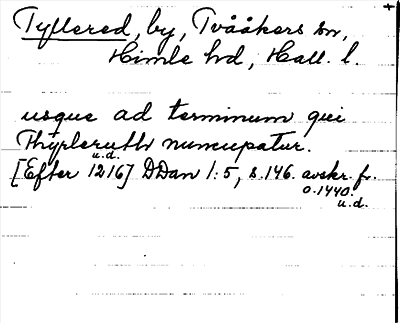 Tyllered, by, Tvååkers sn,
Himle hd, Hall. l.
usque ad terminum qui
Thyrleruth nuncupatur.
u.d.
[Efter 1216] DDan 1:5, s.146. avskr. fr.
o.1440.
u.d.